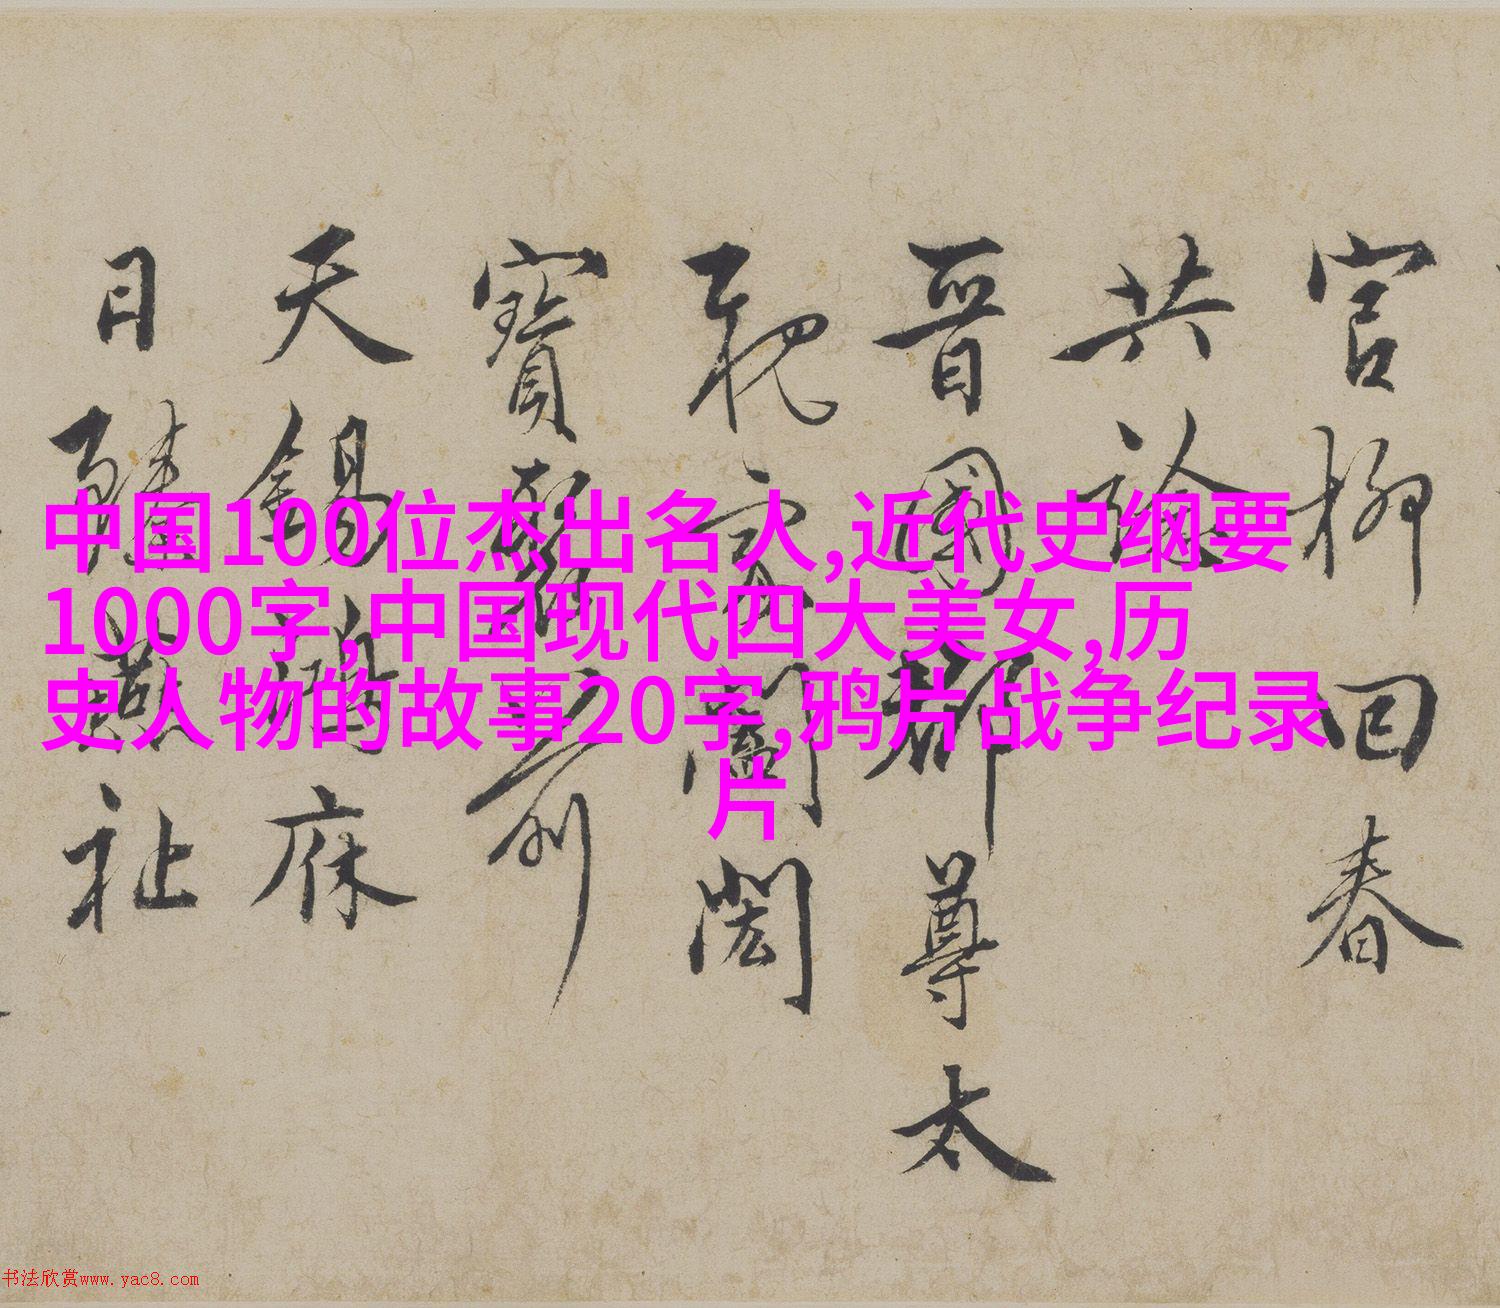 官柳回春
共論
晋國郡尊太
閎
寶
天錫鴻庥
日臻燕祉
中国100位杰出名人,近代史纲要
1000字,中国现代四大美女,历
史人物的故事20字,鸦片战争纪录
片
书法欣赏www.yac8.com